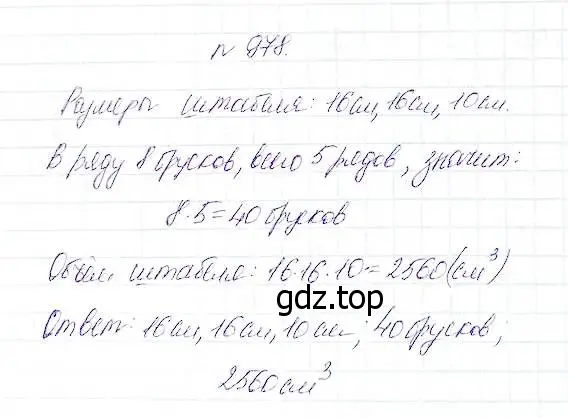 № 978.
Размеры штабеля: 16см, 16см, 10см.
В ряду 8 брусков, всего 5 рядов, значит:
8·5=40 брусков
Объём штабеля: 16·16·10=2560(см³)
gdz.top
Ответ: 16см, 16см, 10см; 40 брусков;
2560см³